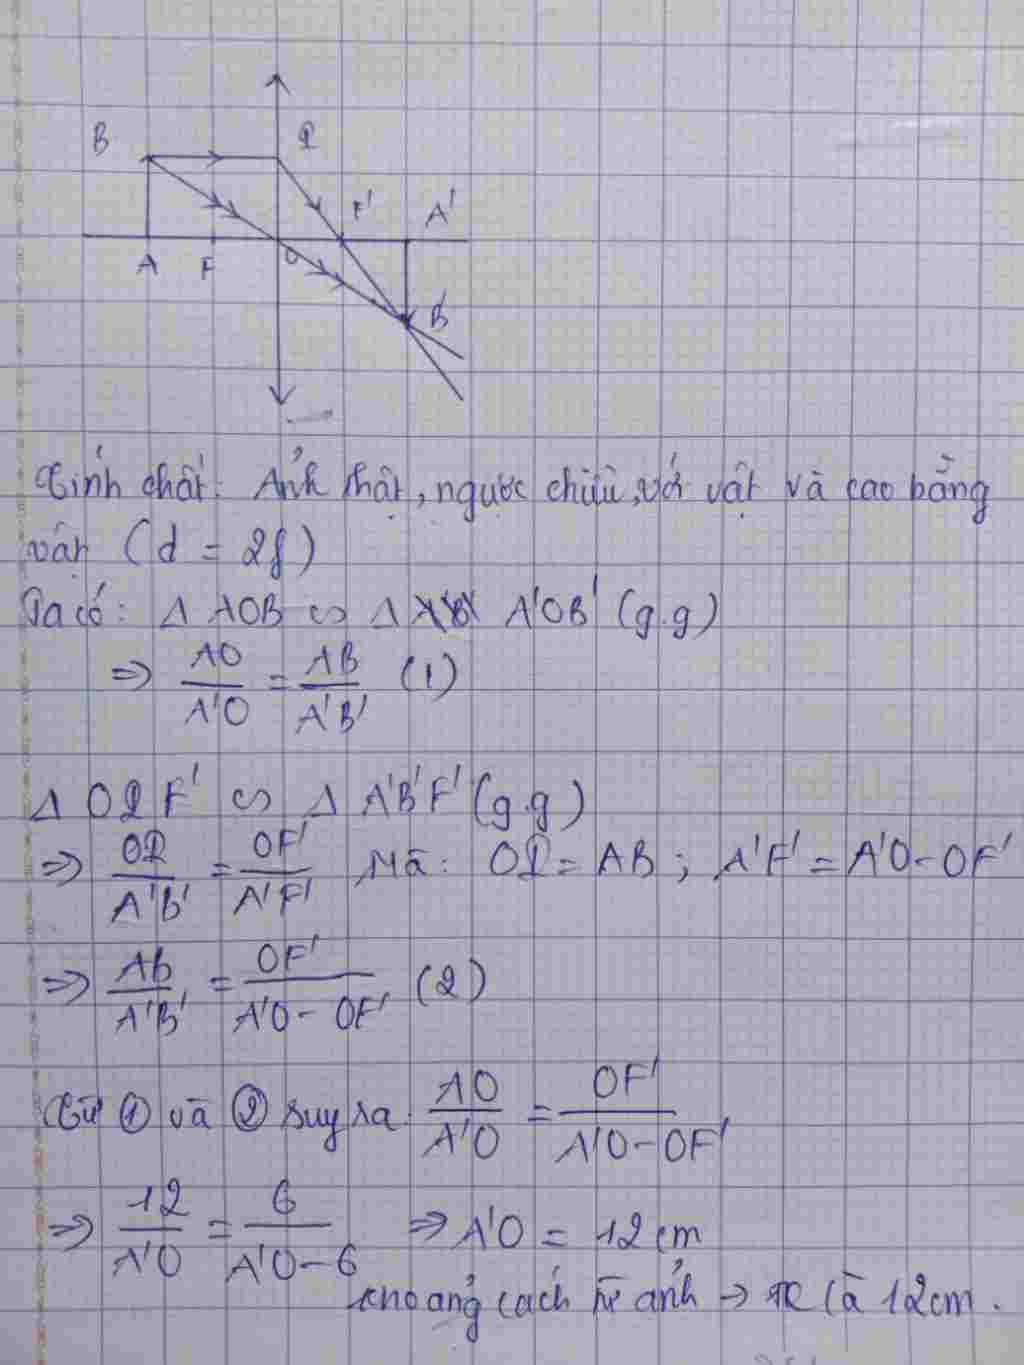 B I
F' A'
A F O
B'
Tính chất: Ảnh thật, ngược chiều với vật và cao bằng
vật (d = 2f)
Ta có: Δ AOB ∽ Δ A'OB' (g.g)
⇒ AO/A'O = AB/A'B' (1)
Δ OIF' ∽ Δ A'B'F' (g.g)
⇒ OI/A'B' = OF'/A'F' Mà: OI = AB ; A'F' = A'O - OF'
⇒ AB/A'B' = OF'/A'O - OF' (2)
Từ ① và ② suy ra: AO/A'O = OF'/A'O - OF'
⇒ 12/A'O = 6/A'O - 6 ⇒ A'O = 12 cm
Khoảng cách từ ảnh → TK là 12cm.